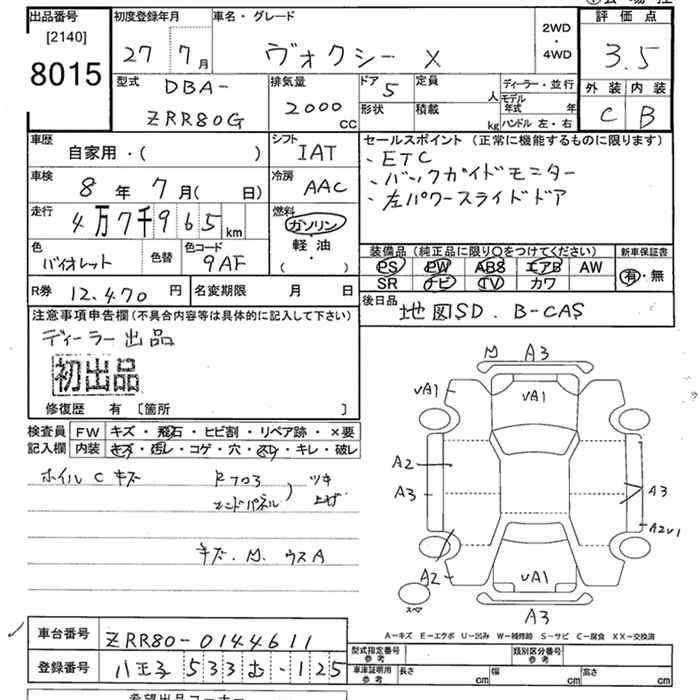 出品番号
[2140]
8015
初度登録年月
27 7月
車名・グレード
ヴォクシー X
2WD
・
4WD
評価点
3.5
外装 内装
C B
型式
DBA-
ZRR80G
排気量
2000
cc
ドア 5
定員
人
形状
積載
kg
ディーラー・並行
モデル年式 年
ハンドル 左・右
車歴
自家用・( )
シフト
IAT
車検
8年7月( 日)
冷房
AAC
走行
4万7千965
km
燃料
ガソリン
軽油
( ・ )
色
バイオレット
色替
色コード
9AF
R券 12,470 円
名変期限 月 日
セールスポイント(正常に機能するものに限ります)
、ETC
、バックガイドモニター
、左パワースライドドア
装備品(純正品に限り○をつけてください)
PS PW ABS エアB AW
SR ナビ TV カワ
新車保証書
有・無
後日品 地図SD. B-CAS
注意事項申告欄(不具合内容等は具体的に記入して下さい)
ディーラー出品
初出品
修復歴 有 [箇所 ]
検査員 FW キズ・飛石・ヒビ割・リペア跡・×要
記入欄 内装 キズ・汚レ・コゲ・穴・スリ・キレ・破レ
ホイルCキズ
R703
エンドパネル
ツキ
上ゲ
キズ.M.ウスA
M A3
VA1
VA1
A2
A3
A3
A2V1
A2
VA1
スペア
A3
A-キズ E-エクボ U-凹み W-補修跡 S-サビ C-腐食 XX-交換済
車台番号 ZRR80-0144611
登録番号 八王子 533 む -125
型式指定番号
参考
類別区分番号
参考
車庫証明用
参考
長さ cm
幅 cm
高さ cm
希望出品コーナー